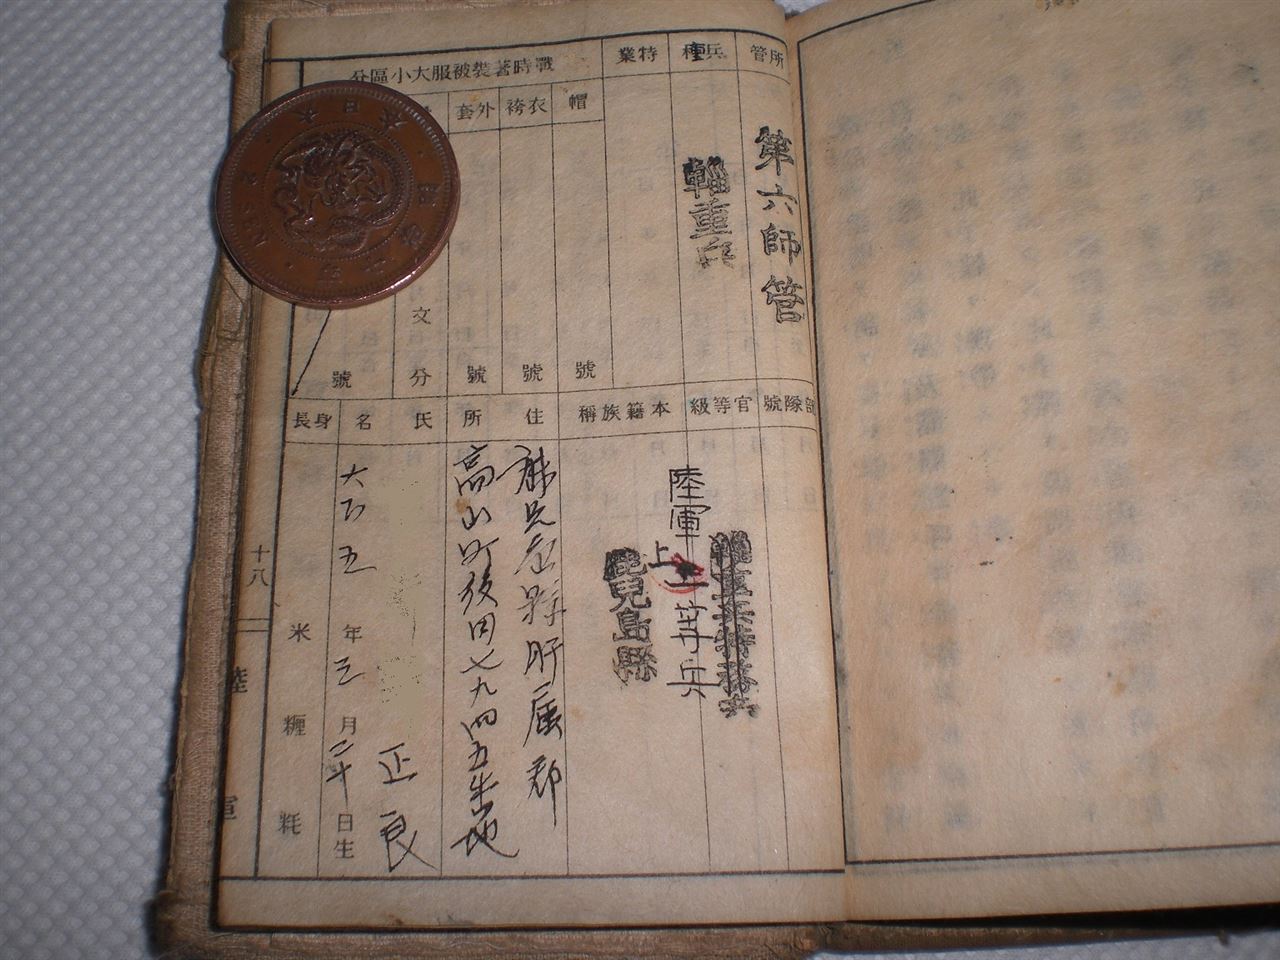 所管
第六師管
兵種
輜重兵
特業
戰時著裝被服大小區分
帽
號
衣袴
號
外套
號
文
分
號
部隊號
官等級
輜重兵特務兵
陸軍
上
一等兵
本籍族稱
鹿兒島縣
住所
鹿児島縣肝属郡
高山町後田七九四五番地
氏名
正良
大正五年三月二十日生
身長
米
糎
粍
十八
陸
軍
大日本